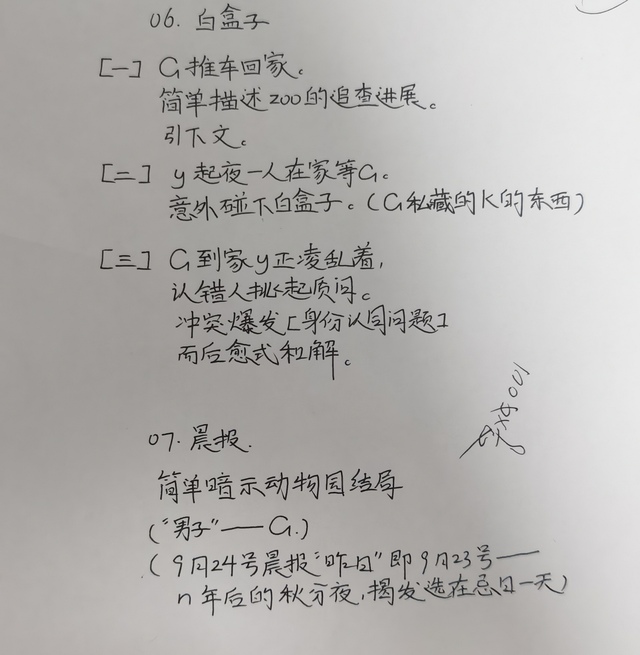 06. 白盒子
[一] G推车回家。
简单描述zoo的追查进展。
引下文。
[二] y起夜一人在家等G。
意外碰下白盒子。(G私藏的K的东西)
[三] G到家y正凌乱着,
认错人挑起质问。
冲突爆发[身份认同问题]
而后愈式和解。
07. 晨报.
简单暗示动物园结局
("男子"——G.)
(9月24号晨报"昨日"即9月23号——
n年后的秋分夜,揭发选在忌日一天)